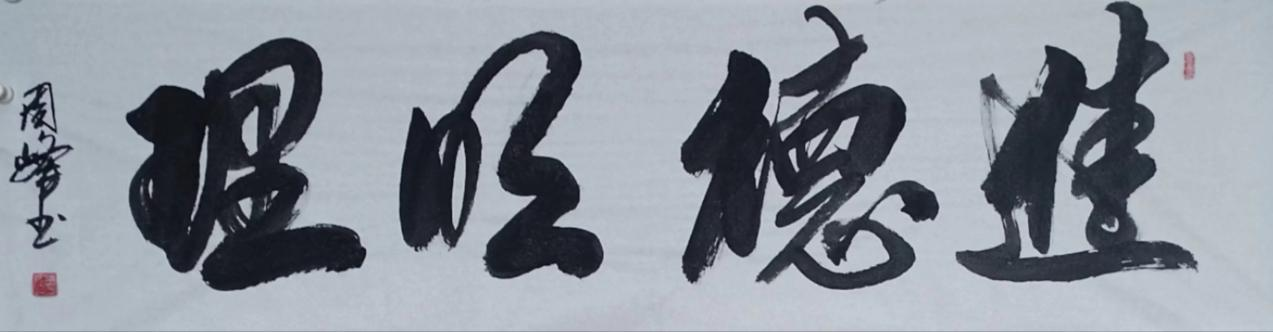 進德明理
周峰书